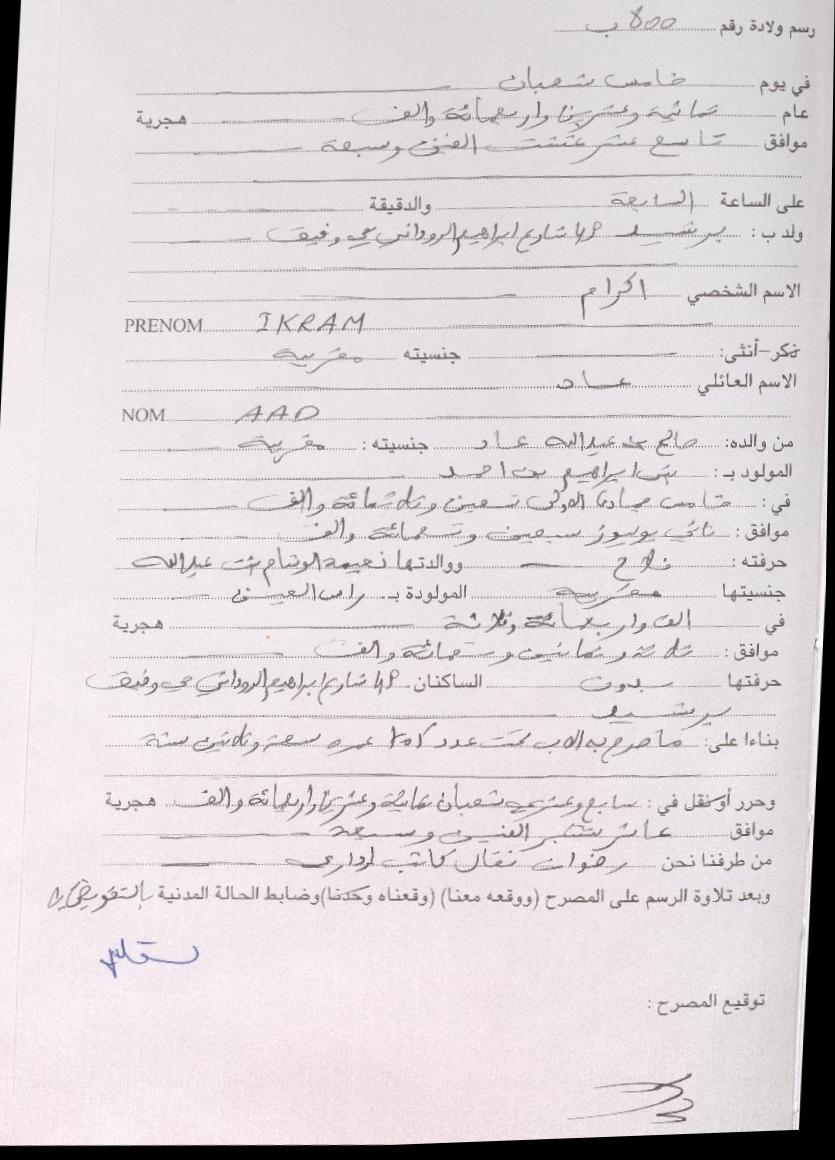 رسم ولادة رقم 800 ب
في يوم خامس شعبان
عام ثمانية وعشرين واربعمائة والف هجرية
موافق تاسع عشر غشت الفين وسبعة
على الساعة السابعة والدقيقة
ولد ب : برشيد شارع ابراهيم الروداني حي وفيق
الاسم الشخصي اكرام
PRENOM IKRAM
ذكر-أنثى: جنسيته مغربية
الاسم العائلي عاد
NOM AAD
من والده: صالح بن عبد الله عاد جنسيته: مغربية
المولود بـ : بني ابراهيم بن احمد
في : خامس جمادى الاولى تسعين وثلاثمائة والف
موافق : ثاني يوليوز سبعين وتسعمائة والف
حرفته : فلاح ووالدتها نعيمة بنت عبد الله
جنسيتها مغربية المولودة بـ راس العين
في الف واربعمائة وثلاثة هجرية
موافق : ثلاثة وثمانين وتسعمائة والف
حرفتها بدون الساكنان شارع ابراهيم الروداني حي وفيق
برشيد
بناءا على: ما صرح به الاب تحت عدد عمره سبعة وثلاثين سنة
وحرر أو نقل في : سابع وعشري شعبان ثمانية وعشرين واربعمائة والف هجرية
موافق عاشر شتنبر الفين وسبعة
من طرفنا نحن رضوان نقال كاتب اداري
وبعد تلاوة الرسم على المصرح (ووقعه معنا) (وقعناه وحدنا) وضابط الحالة المدنية بالتفويض
توقيع المصرح :